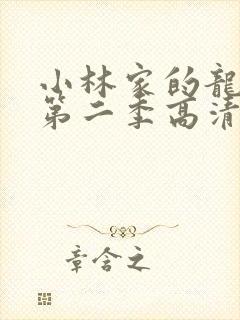 小林家的龍
第二季高清
章含之